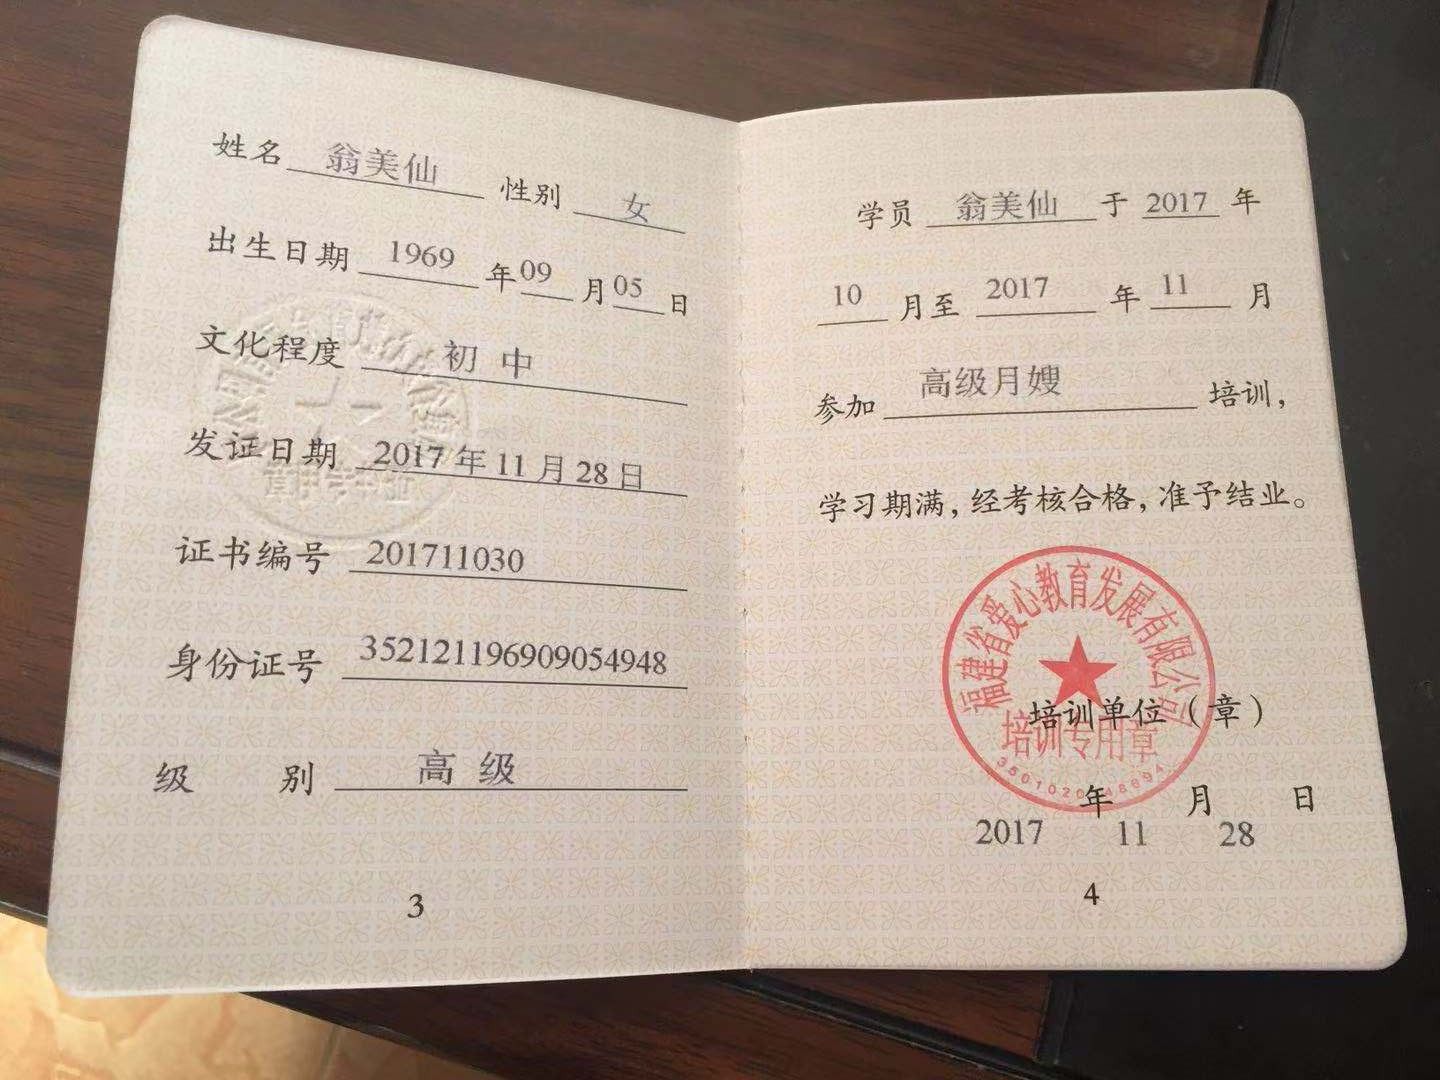 姓名 翁美仙 性别 女
出生日期 1969 年 09 月 05 日
文化程度 初中
发证日期 2017年11月28日
证书编号 201711030
身份证号 352121196909054948
级 别 高级
3
学员 翁美仙 于 2017 年
10 月至 2017 年 11 月
参加 高级月嫂 培训，
学习期满，经考核合格，准予结业。
福建省爱心教育发展有限公司
培训单位（章）
培训专用章
年 月 日
2017 11 28
4